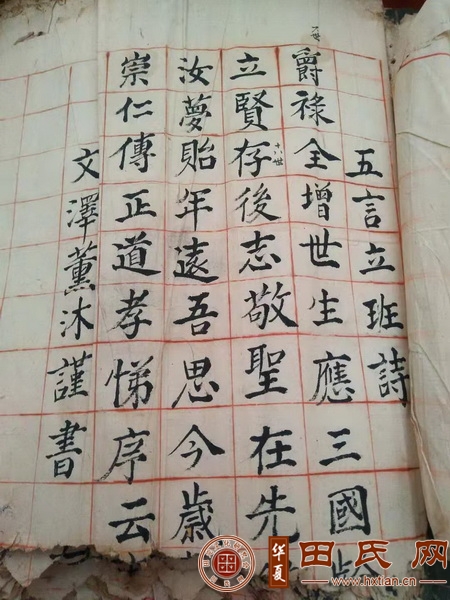 五言立班詩
爵祿全增世生應三國
立賢存後志敬聖在先
十八世
汝夢貽年遠吾思今歲
崇仁傳正道孝悌序云
文澤薰沐謹書
華夏
田氏网
www.hxtian.cn